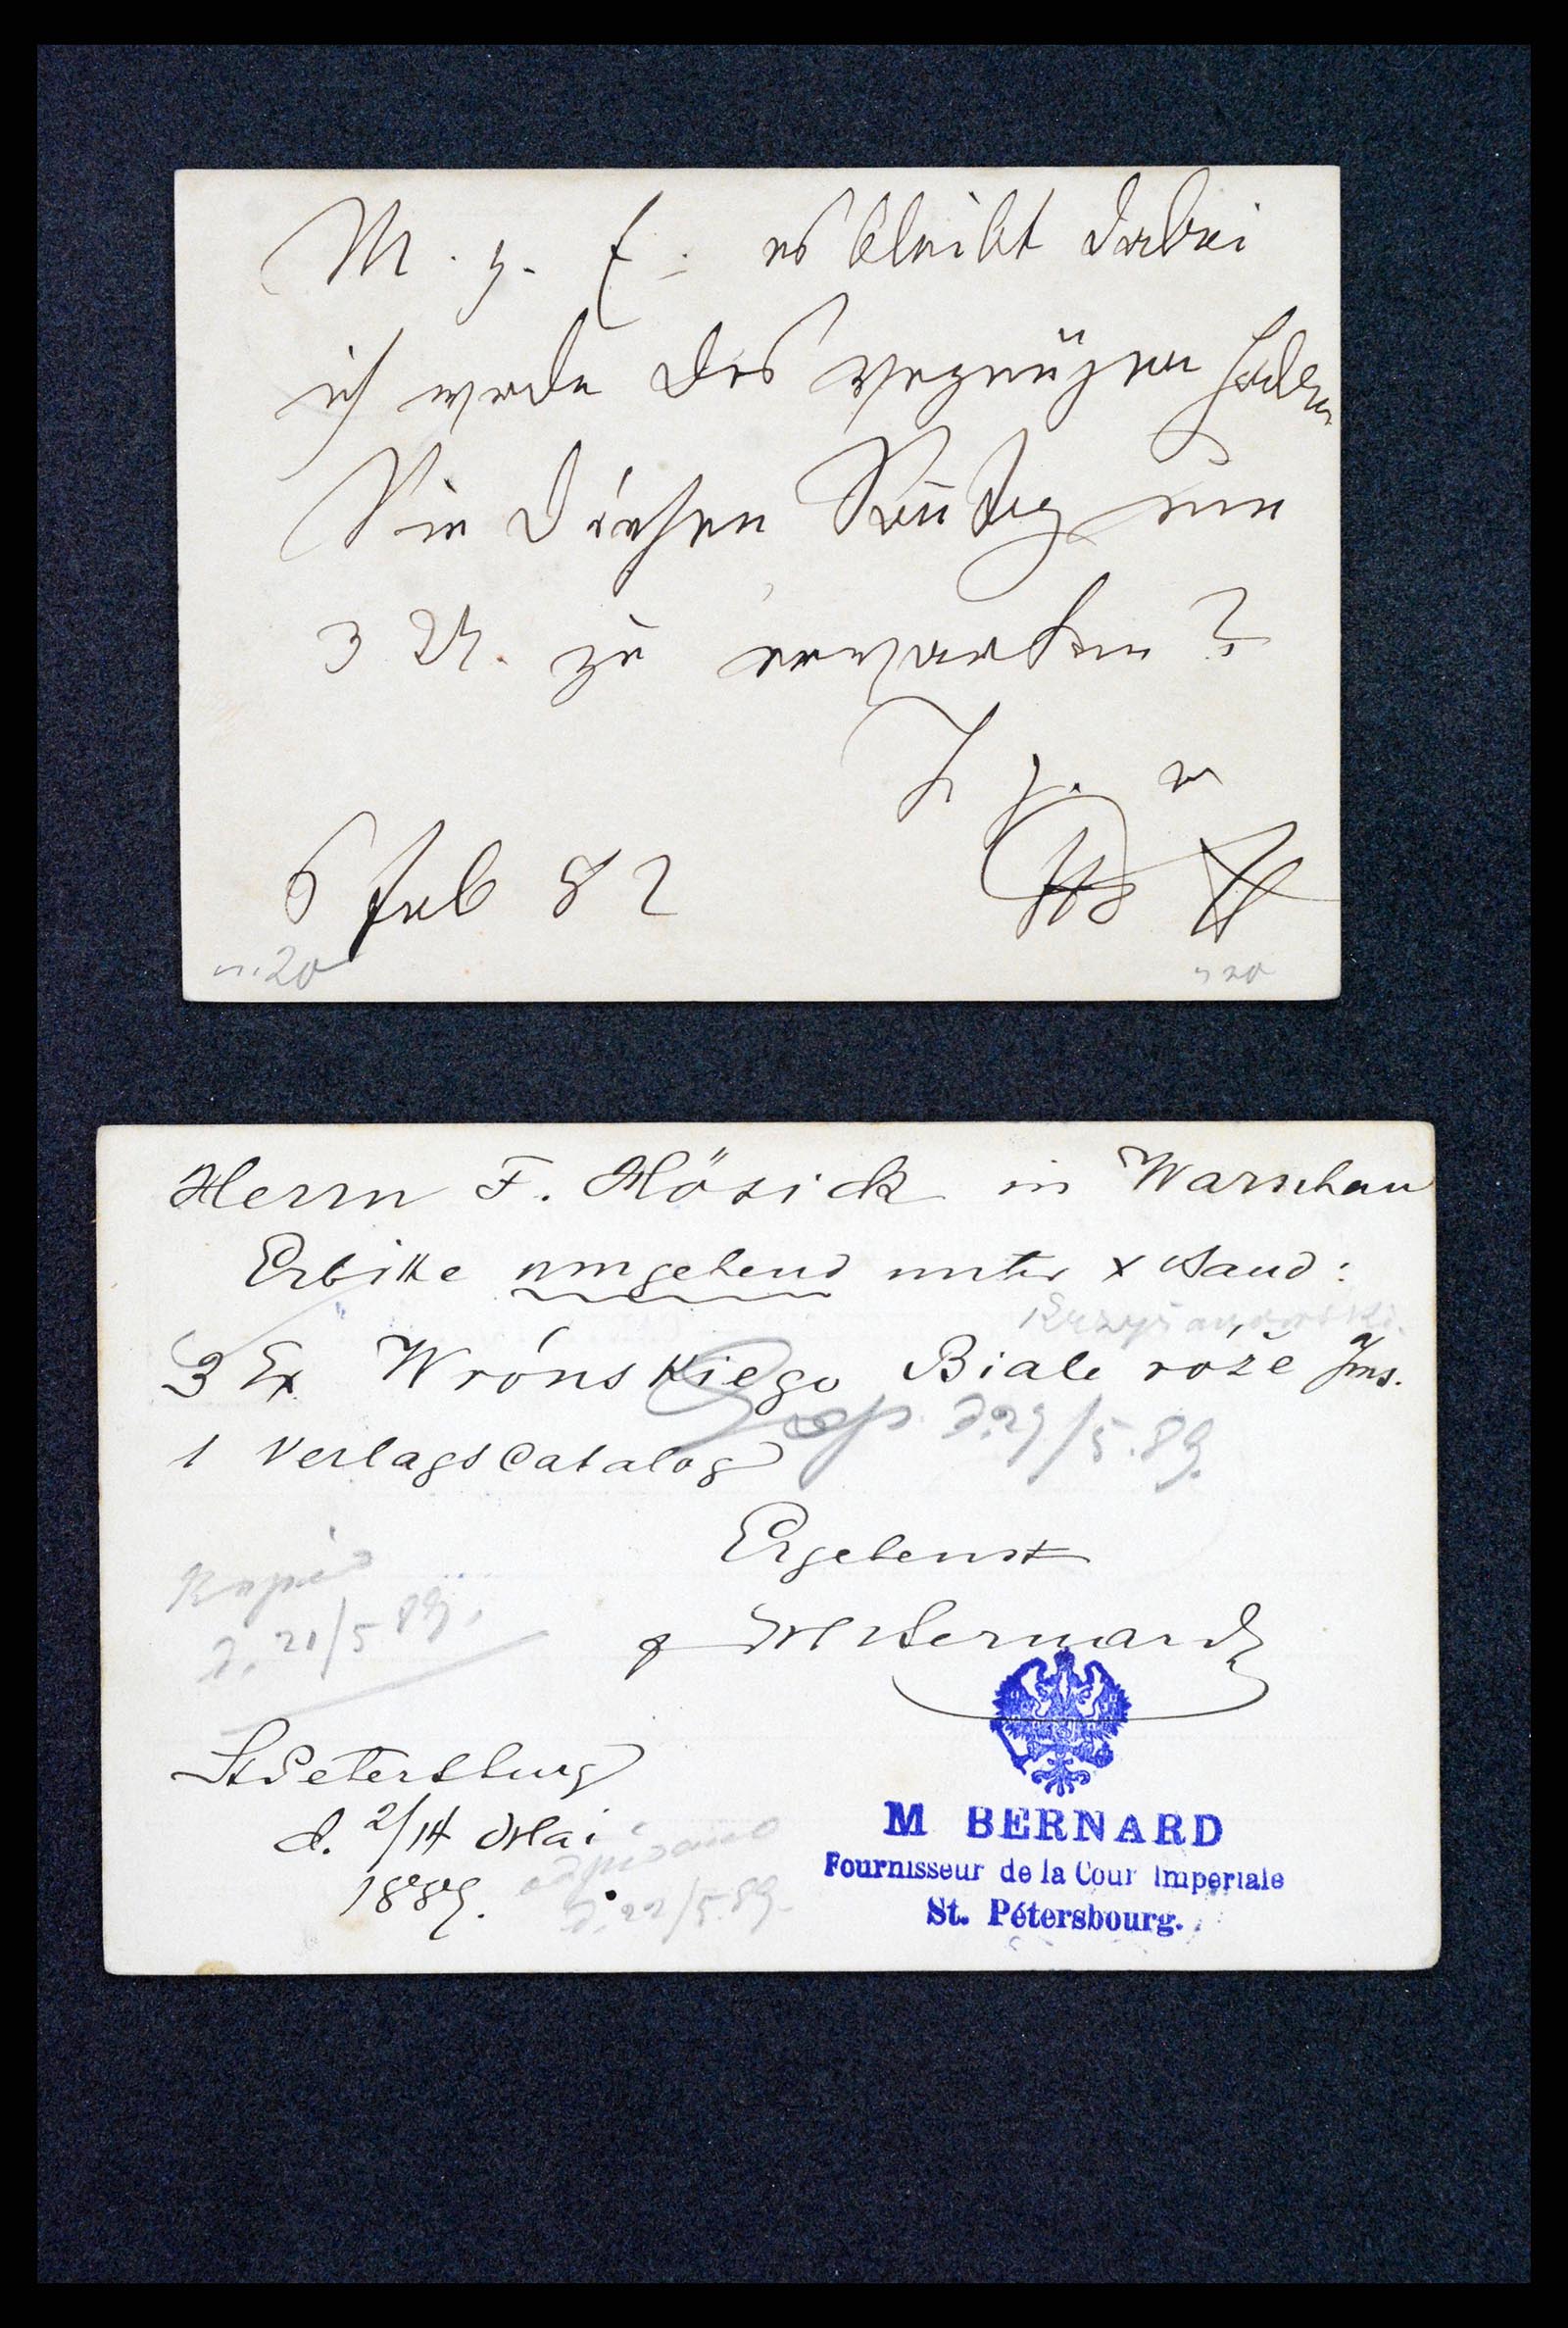 M. g. F: es bleibt dabei
ich werde das vergnügen haben
Sie diesen Sonntag um
3 U. zu erwarten?
6 Feb 82
n. 20
n 20
Herrn F. Hösick in Warschau
Erbitte umgehend unter x Band:
3 Ex Wrónskiego Biale róże
1 Verlagscatalog
d. 29/5.89.
Ergebenst
M Bernard
d. 21/5 89.
St Petersburg
d. 2/14 Mai
1889.
d. 22/5.89.
M BERNARD
Fournisseur de la Cour Imperiale
St. Pétersbourg.